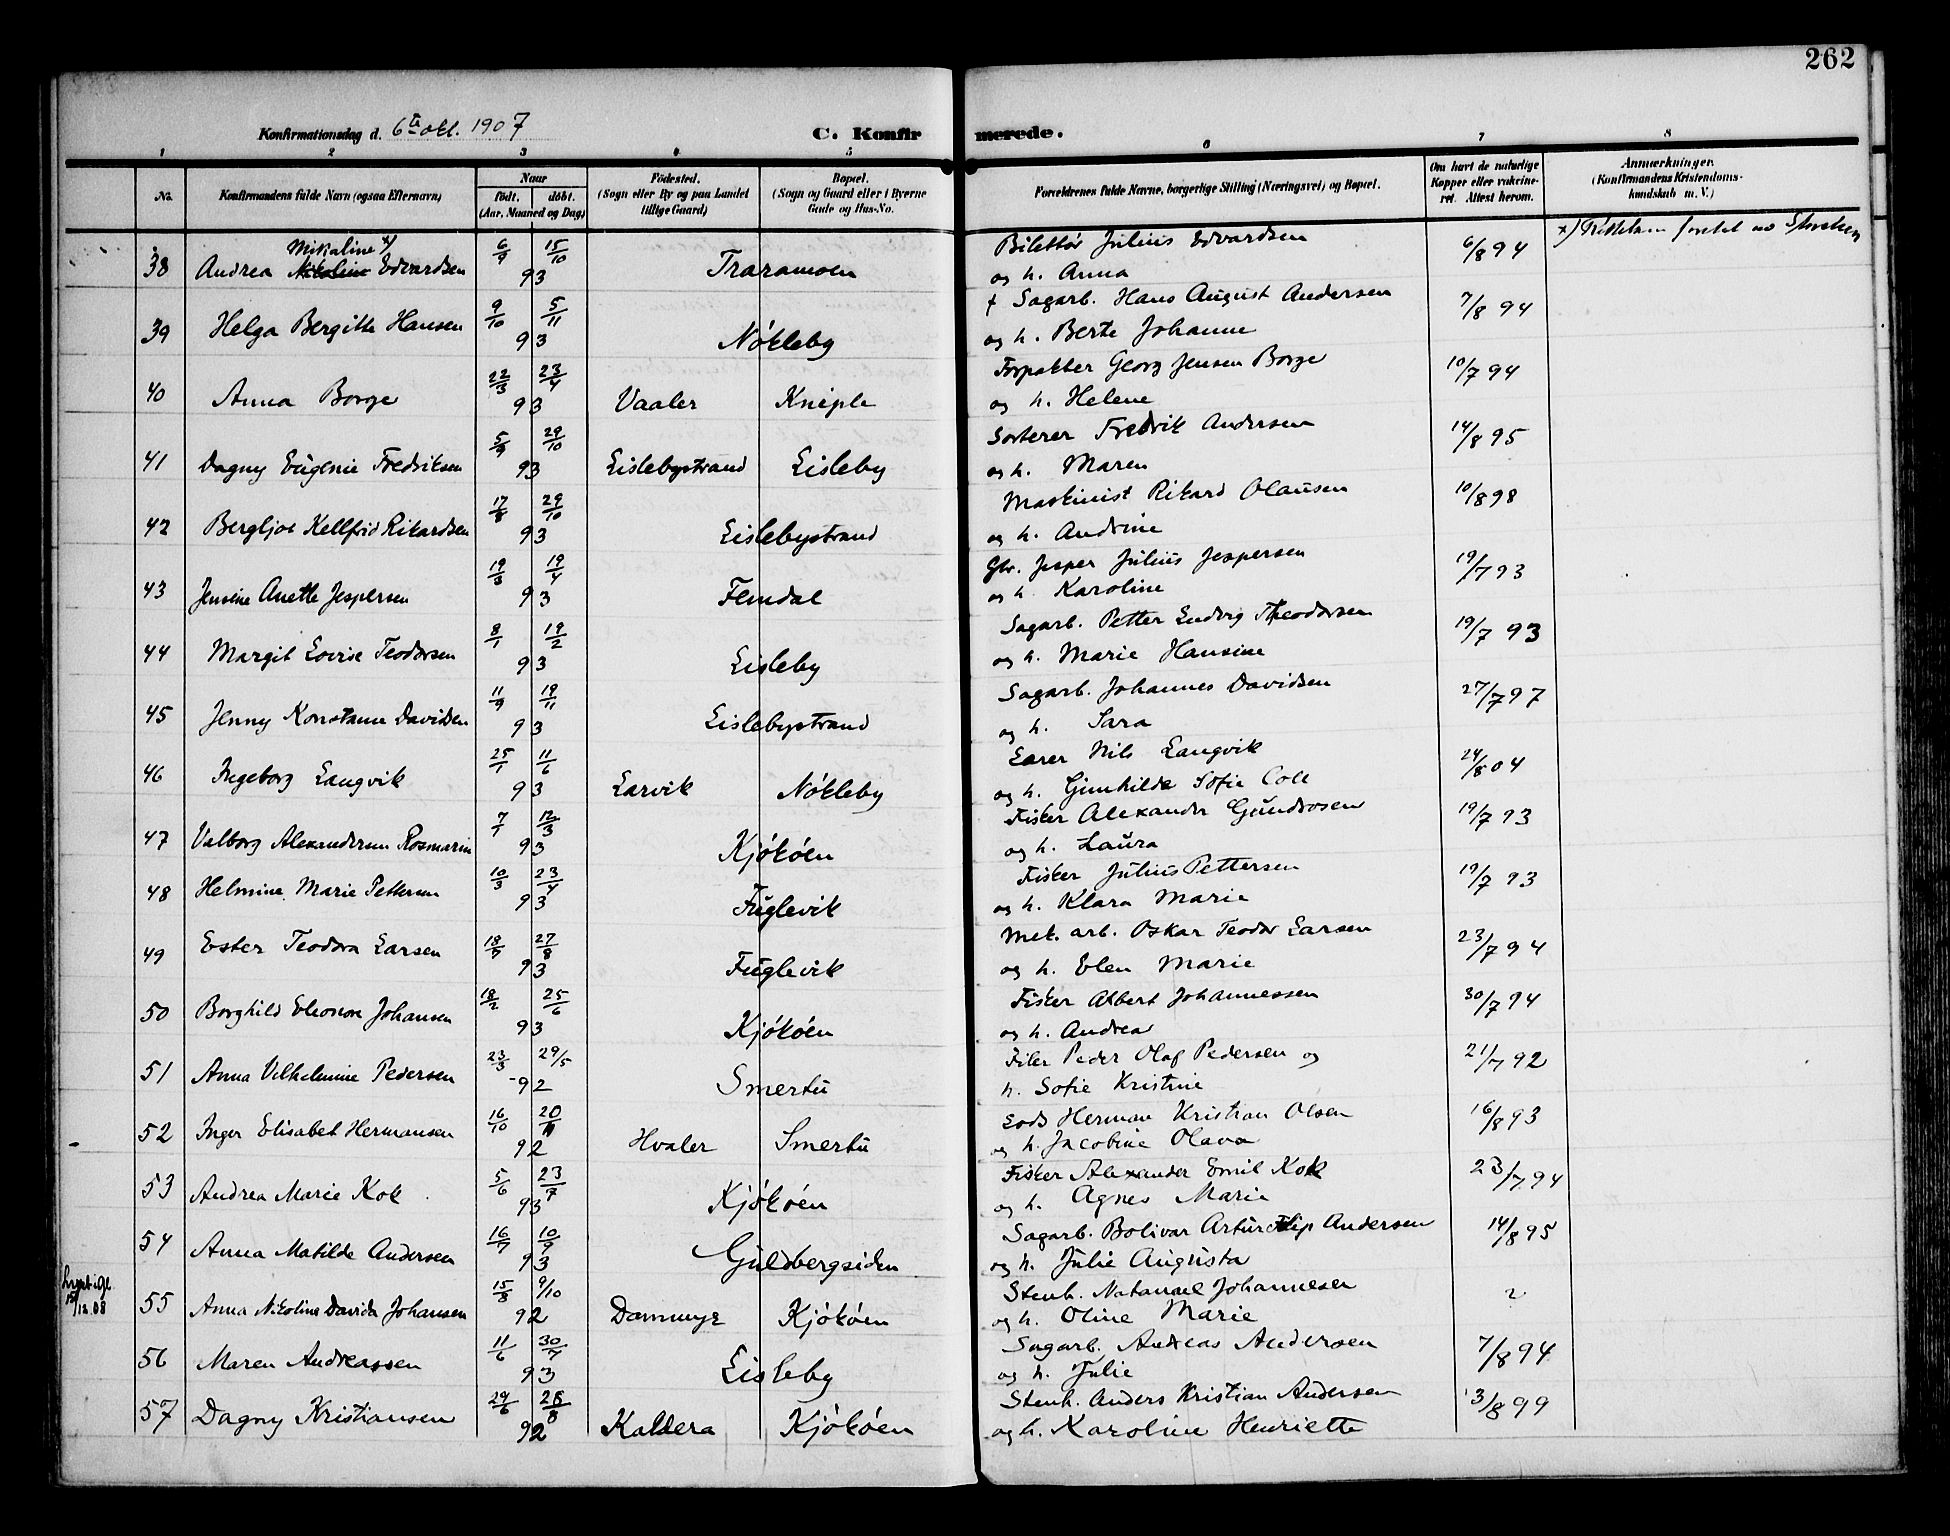 262
Konfirmationsdag d. 6te okt. 1907 C. Konfirmerede.
1 2 3 4 5 6 7 8
No. Konfirmandens fulde Navn (ogsaa Efternavn) Naar født. døbt. (Aar, Maaned og Dag) Fødested. (Sogn eller By og paa Landet tillige Gaard) Bopæl. (Sogn og Gaard eller i Byerne Gade og Hus-No. Forældrenes fulde Navne, borgerlige Stilling (Næringsvei) og Bopæl. Om havt de naturlige Kopper eller vakcineret. Attest herom. Anmærkninger. (Konfirmandens Kristendomskundskab m. V.)
38 Andrea Nikoline Mikaline x) Edvardsen 6/9 15/10 93 Traramoen Bilettør Julius Edvardsen 6/8 94 x) Rettelsen foretat
og h. Anna
39 Helga Bergitte Hansen 9/10 5/11 93 Nökleby † Sagarb. Hans August Andersen 7/8 94
og h. Berte Johanne
40 Anna Borge 22/3 23/4 93 Vaaler Kniple Forpakter Georg Jensen Borge 10/7 94
og h. Helene
41 Dagny Eugenie Fredriksen 5/9 29/10 93 Lislebystrand Lisleby Sorterer Fredrik Andersen 14/8 95
og h. Maren
42 Bergljot Kellfrid Rikardsen 17/8 29/10 93 Lislebystrand Maskinist Rikard Olausen 10/8 98
og h. Andrine
43 Jensine Anette Jespersen 19/3 19/4 93 Femdal Gbr. Jesper Julius Jespersen 19/7 93
og h. Karoline
44 Margit Lovise Teodorsen 8/1 19/2 93 Lisleby Sagarb. Petter Ludvig Theodorsen 19/7 93
og h. Marie Hansine
45 Jenny Konstanse Davidsen 11/9 19/11 93 Lislebystrand Sagarb. Johannes Davidsen 27/7 97
og h. Sara
46 Ingeborg Langvik 25/1 11/6 93 Larvik Nökleby Lærer Nils Langvik 24/8 04
og h. Gunhilde Sofie Coll
47 Valborg Alexandersen Rosmarin 7/1 12/3 93 Kjököen Fisker Alexander Gundrosen 19/7 93
og h. Laura
48 Helmine Marie Pettersen 10/3 23/4 93 Fuglevik Fisker Julius Pettersen 19/7 93
og h. Klara Marie
49 Ester Teodora Larsen 18/7 27/8 93 Fuglevik Mek. arb. Oskar Teodor Larsen 23/7 94
og h. Elen Marie
50 Borghild Eleonore Johansen 18/2 25/6 93 Kjököen Fisker Albert Johannessen 30/7 94
og h. Andrea
51 Anna Vilhelmine Pedersen 23/3 29/5 -92 Smertu Filer Peder Olaf Pedersen og 21/7 92
h. Sofie Kristine
52 Inger Elisabet Hermansen 16/10 20/11 92 Hvaler Smertu Lods Herman Kristian Olsen 16/8 93
og h. Jacobine Olava
53 Andrea Marie Kok 5/6 23/7 93 Kjököen Fisker Alexander Emil Kok 23/7 94
og h. Agnes Marie
54 Anna Matilde Andersen 16/7 10/9 93 Guldbergsiden Sagarb. Bolivar Artur Filip Andersen 14/8 95
og h. Julie Augusta
15/12.08 55 Anna Nikoline Davida Johansen 15/8 9/10 92 Dammyr Kjököen Stenh. Natanael Johannesen ?
og h. Oline Marie
56 Maren Andreassen 11/6 30/7 93 Lisleby Sagarb. Andreas Andersen 7/8 94
og h. Julie
57 Dagny Kristiansen 29/6 28/8 92 Kaldera Kjököen Stenh. Anders Kristian Andersen 13/8 99
og h. Karoline Henriette